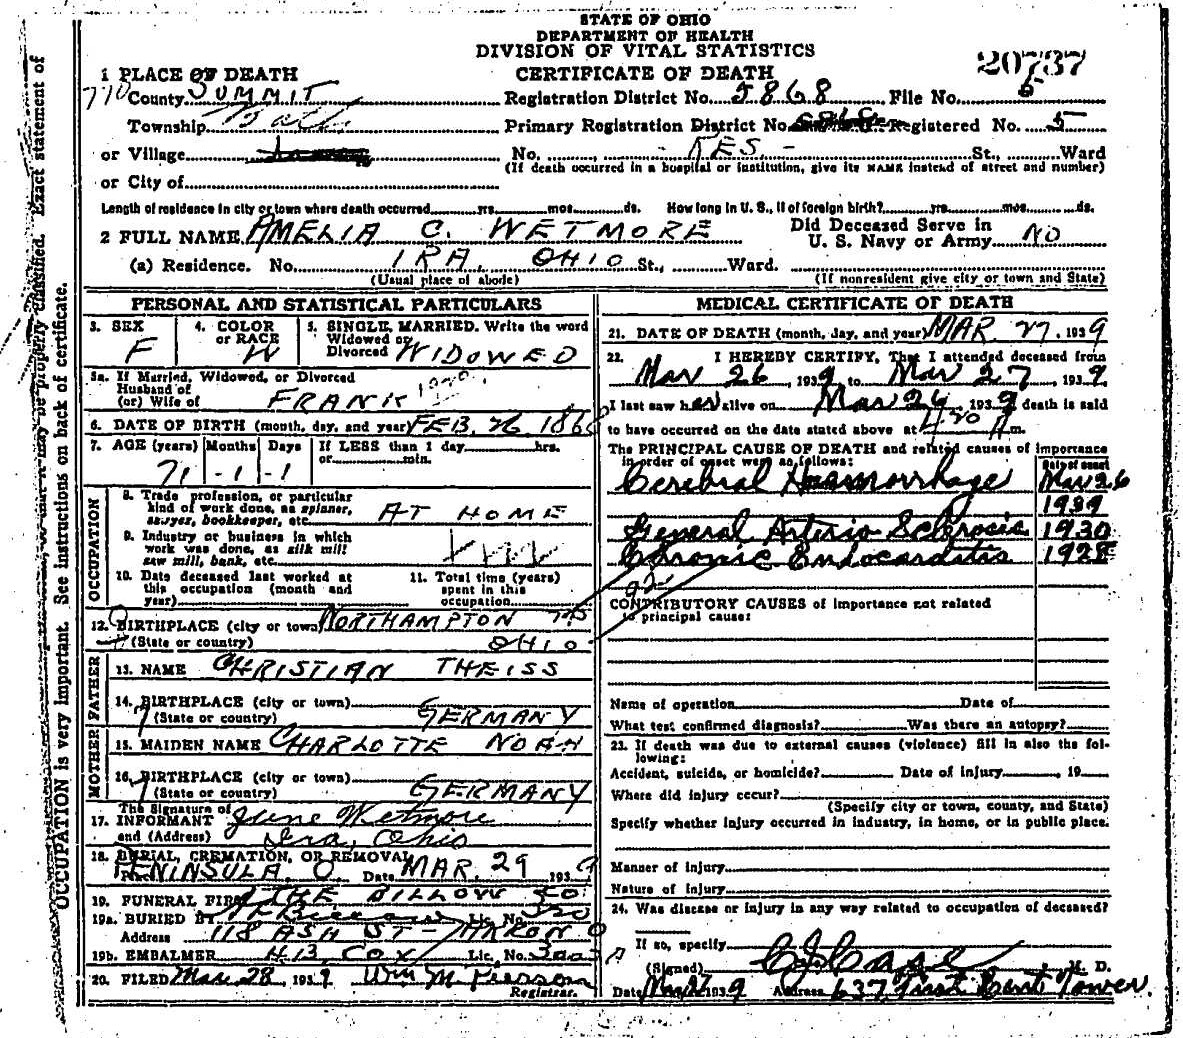 STATE OF OHIO
DEPARTMENT OF HEALTH
DIVISION OF VITAL STATISTICS
CERTIFICATE OF DEATH
20737
1 PLACE OF DEATH
770
County SUMMIT
Registration District No. 5868 File No. 5
Township Bath
Primary Registration District No. 5868 Registered No. 5
or Village
No. - RES. - St., Ward
or City of
(If death occurred in a hospital or institution, give its NAME instead of street and number)
Length of residence in city or town where death occurred yrs. mos. ds. How long in U. S., if of foreign birth? yrs. mos. ds.
2 FULL NAME AMELIA C. WETMORE
Did Deceased Serve in U. S. Navy or Army NO
(a) Residence. No. IRA, OHIO St., Ward.
(Usual place of abode) (If nonresident give city or town and State)
PERSONAL AND STATISTICAL PARTICULARS
3. SEX F
4. COLOR or RACE W
5. SINGLE, MARRIED. Write the word Widowed or Divorced WIDOWED
5a. If Married, Widowed, or Divorced
Husband of
(or) Wife of FRANK
6. DATE OF BIRTH (month, day, and year) FEB. 26 1868
7. AGE (years) Months Days If LESS than 1 day hrs.
or min.
71 - 1 - 1
OCCUPATION
8. Trade profession, or particular kind of work done, as spinner, sawyer, bookkeeper, etc. AT HOME
9. Industry or business in which work was done, as silk mill saw mill, bank, etc.
10. Date deceased last worked at this occupation (month and year)
11. Total time (years) spent in this occupation
12. BIRTHPLACE (city or town) NORTHAMPTON
(State or country) OHIO
FATHER
13. NAME CHRISTIAN THEISS
14. BIRTHPLACE (city or town)
(State or country) GERMANY
MOTHER
15. MAIDEN NAME CHARLOTTE NOAH
16. BIRTHPLACE (city or town)
(State or country) GERMANY
The Signature of
17. INFORMANT June Wetmore
and (Address) Ira, Ohio
18. BURIAL, CREMATION, OR REMOVAL
PENINSULA, O. Date MAR. 29 1939
19. FUNERAL FIRM THE BILLOW CO.
19a. BURIED BY Lic. No.
Address 118 ASH ST - AKRON O
19b. EMBALMER H.B. COX Lic. No.
20. FILED Mar. 28, 1939 Wm M. Pierson
Registrar.
MEDICAL CERTIFICATE OF DEATH
21. DATE OF DEATH (month, day, and year) MAR. 27, 1939
22. I HEREBY CERTIFY, That I attended deceased from
Mar 26, 1939, to Mar 27, 1939.
I last saw her alive on Mar 26, 1939 death is said
to have occurred on the date stated above at 4 20 A m.
The PRINCIPAL CAUSE OF DEATH and related causes of importance
in order of onset were as follows: Date of onset
Cerebral Haemorrhage Mar 26
1939
General Arterio Sclerosis 1930
Chronic Endocarditis 1928
CONTRIBUTORY CAUSES of importance not related
to principal cause:
Name of operation Date of
What test confirmed diagnosis? Was there an autopsy?
23. If death was due to external causes (violence) fill in also the following:
Accident, suicide, or homicide? Date of injury , 19
Where did injury occur?
(Specify city or town, county, and State)
Specify whether injury occurred in industry, in home, or in public place.
Manner of injury
Nature of injury
24. Was disease or injury in any way related to occupation of deceased?
If so, specify
(Signed) C J Case, M. D.
Date Mar 27 1939 Address 637 First Cent Tower.
OCCUPATION is very important. See instructions on back of certificate.
may be properly classified. Exact statement of